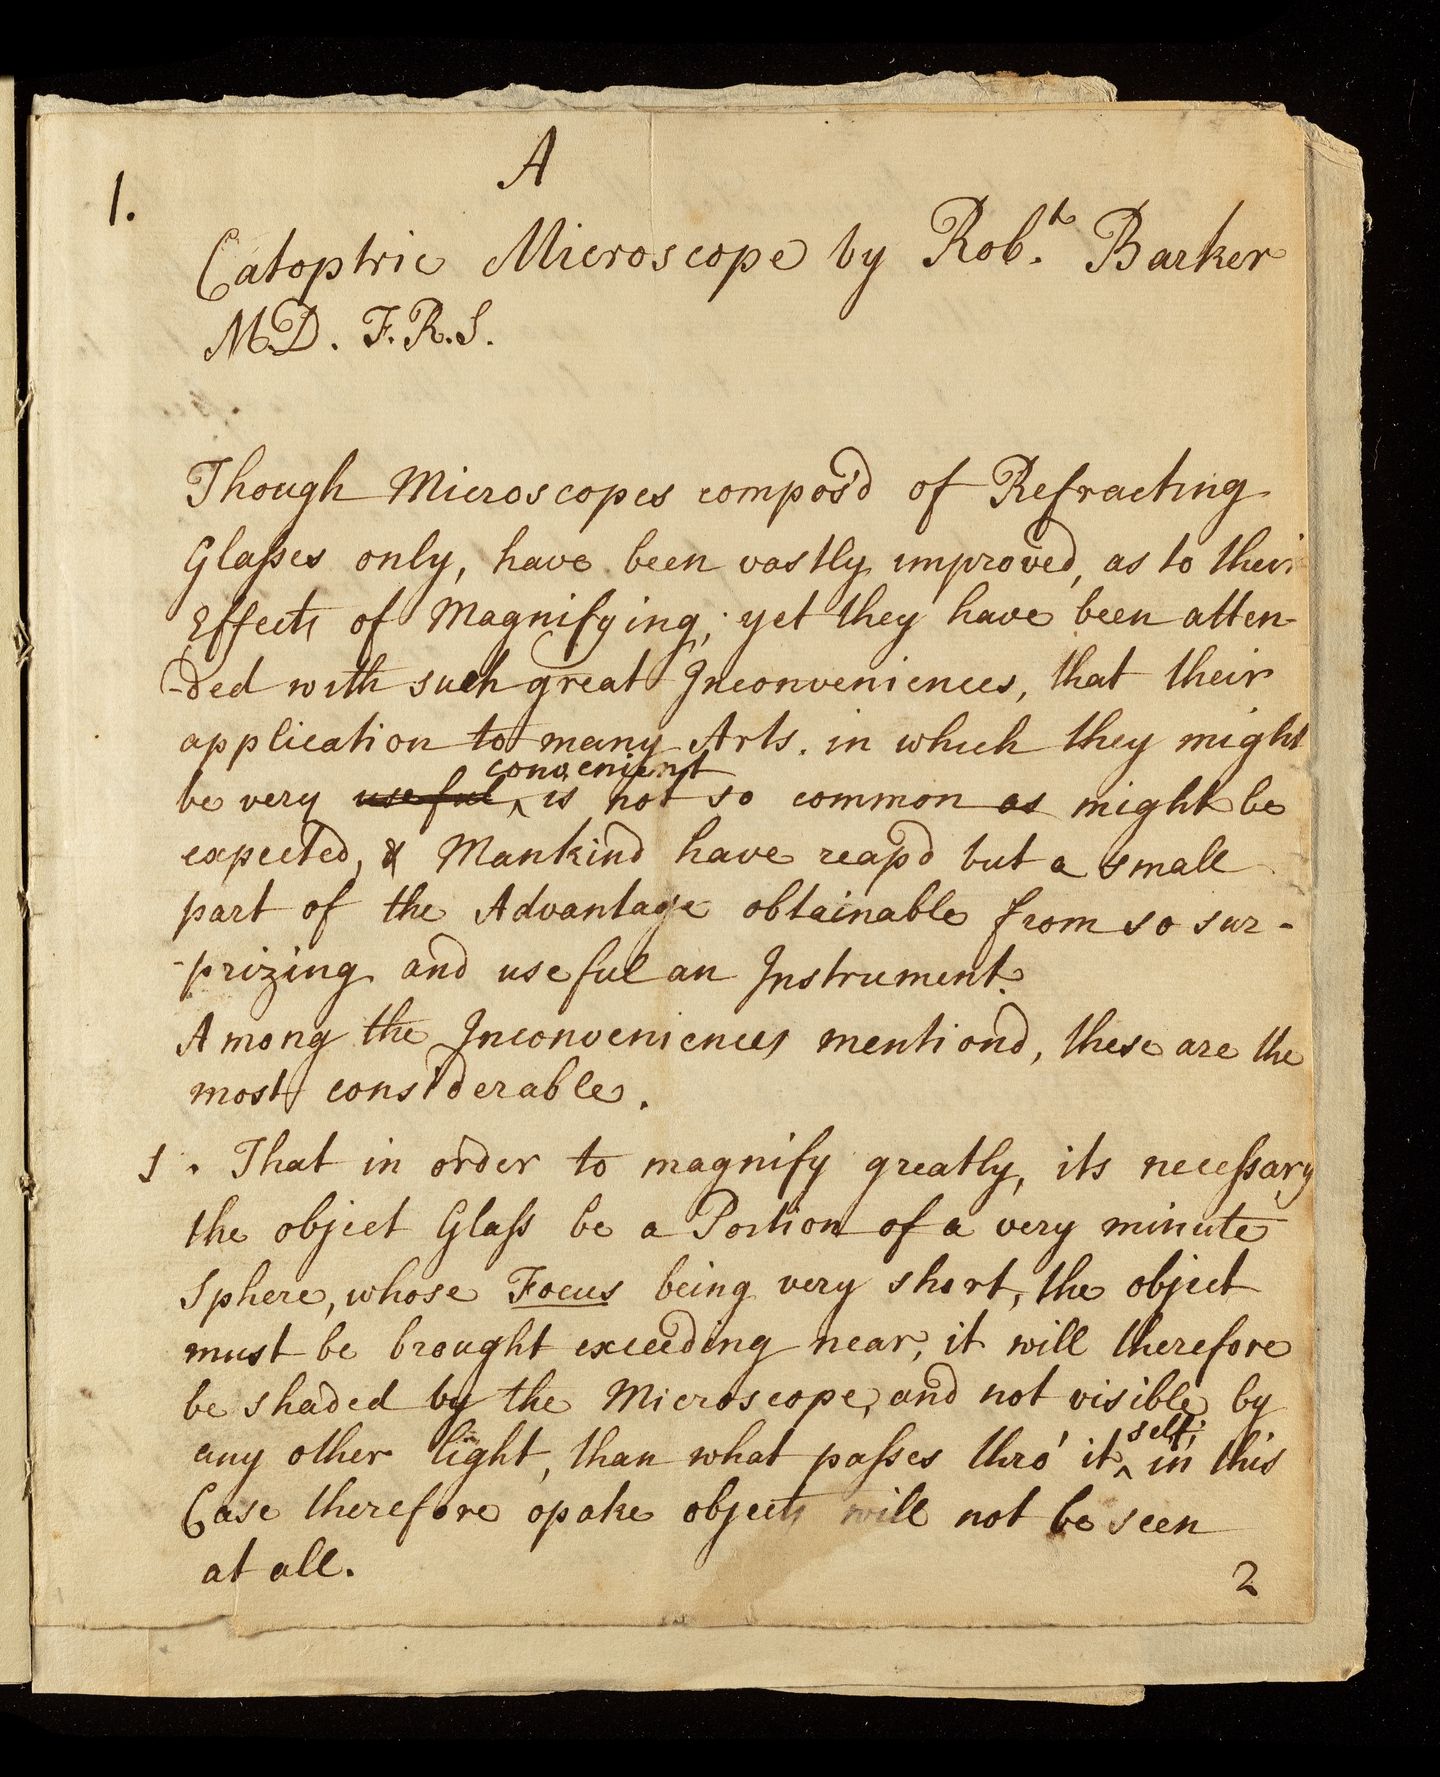 A
1.
Catoptric Microscope by Rob.t Barker
M.D. F.R.S.
Though Microscopes compos'd of Refracting
Glaſses only, have been vastly improved, as to their
Effects of Magnifying; yet they have been atten-
-ded with such great Inconveniences, that their
application to many Arts. in which they might
convenient
be very useful ^ is not so common as might be
expected, & Mankind have reap'd but a small
part of the Advantage obtainable from so sur-
-prizing and useful an Instrument.
Among the Inconveniences mentiond, these are the
most considerable.
1. That in order to magnify greatly, its neceſsary
the object Glaſs be a Portion of a very minute
Sphere, whose Focus being very short, the object
must be brought exceeding near, it will therefore
be shaded by the Microscope, and not visible by
self;
any other light, than what paſses thro' it ^ in this
Case therefore opake objects will not be seen
at all.
2